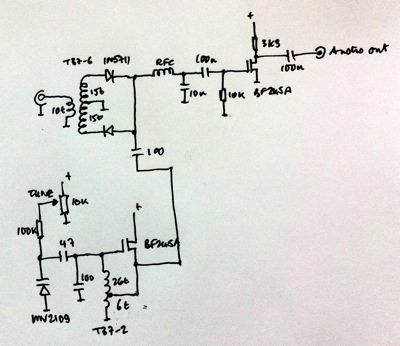 +
3K3
T37-6
1N5711
RFC
100n
100n
Audio out
15t
10t
15t
10n
10K
BF245A
100
+
TUNE
10K
+
100K
47
BF245A
100
26t
6t
MV2109
T37-2